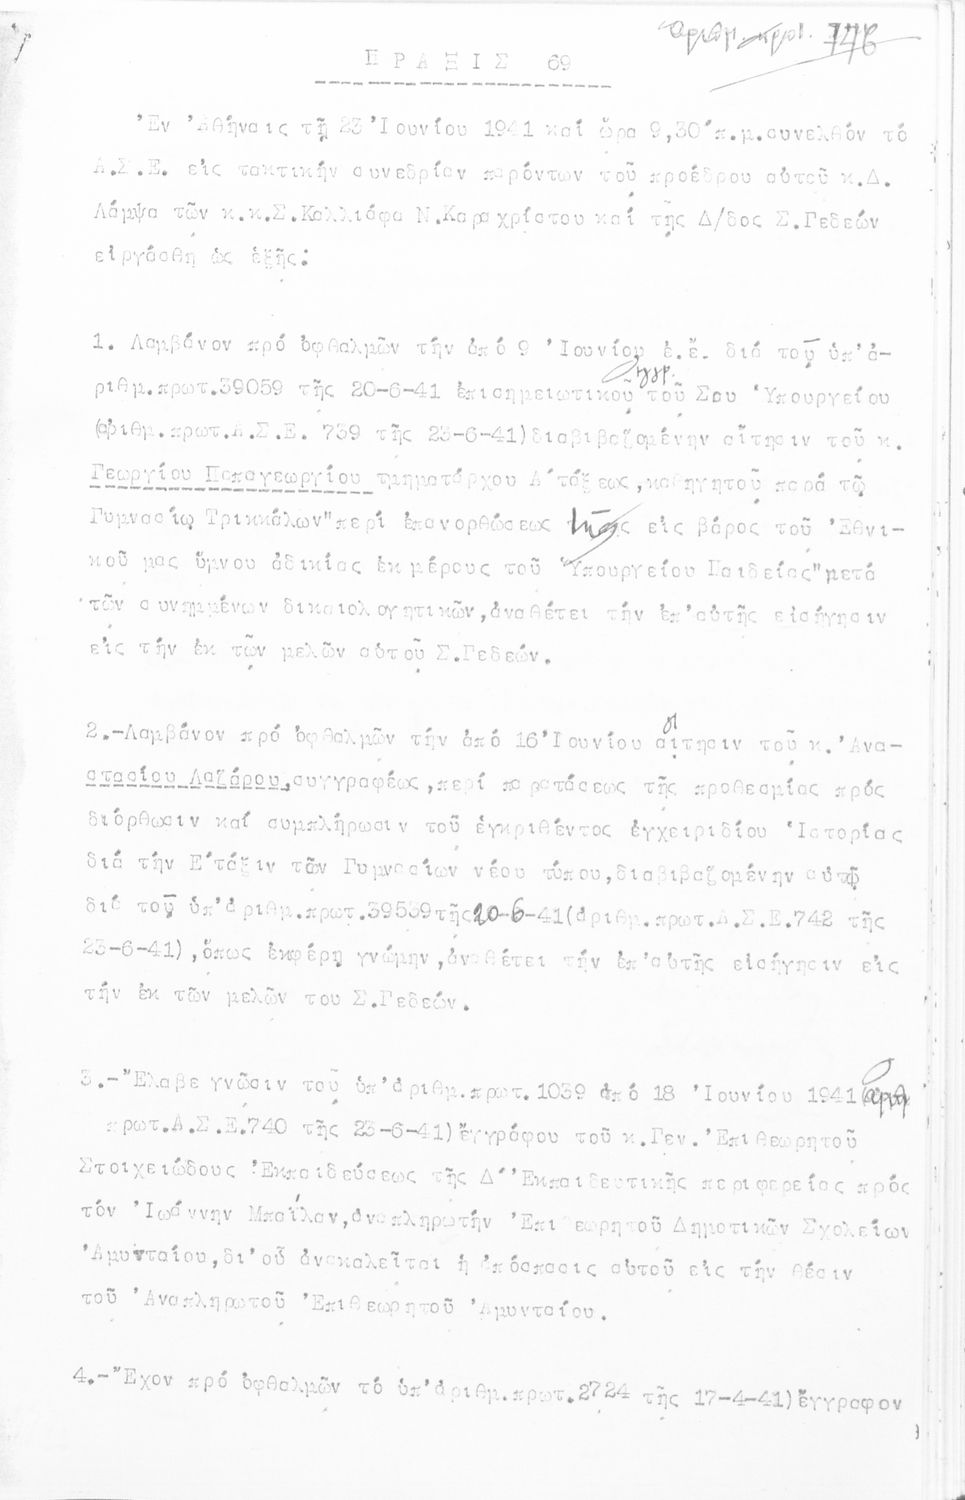 Ἀριθμ. πρωτ. 746
ΠΡΑΞΙΣ 69
Ἐν Ἀθήναις τῇ 23 Ἰουνίου 1941 καί ὥρα 9,30' π.μ. συνελθόν τό
Α.Σ.Ε. εἰς τακτικήν συνεδρίαν παρόντων τοῦ προέδρου αὐτοῦ κ.Δ.
Λάμψα τῶν κ.κ.Σ.Καλλιάφα Ν.Καραχρίστου καί τῆς Δ/δος Σ.Γεδεών
εἰργάσθη ὡς ἑξῆς:
1. Λαμβάνον πρό ὀφθαλμῶν τήν ἀπό 9 Ἰουνίου ἐ.ἔ. διά τοῦ ὑπ'ἀ-
ριθμ.πρωτ.39059 τῆς 20-6-41 ἐπισημειωτικοῦ ἐγγρ. τοῦ Σου Ὑπουργείου
(ἀριθμ.πρωτ.Α.Σ.Ε. 739 τῆς 23-6-41) διαβιβαζομένην αἴτησιν τοῦ κ.
Γεωργίου Παπαγεωργίου τμηματάρχου Α' τάξεως, καθηγητοῦ παρά τῷ
Γυμνασίῳ Τρικκάλων "περί ἐπανορθώσεως τῆς εἰς βάρος τοῦ Ἐθνι-
κοῦ μας ὕμνου ἀδικίας ἐκ μέρους τοῦ Ὑπουργείου Παιδείας" μετά
τῶν συνημμένων δικαιολογητικῶν, ἀναθέτει τήν ἐπ'αὐτῆς εἰσήγησιν
εἰς τήν ἐκ τῶν μελῶν αὐτοῦ Σ.Γεδεών.
2.-Λαμβάνον πρό ὀφθαλμῶν τήν ἀπό 16 Ἰουνίου αἴτησιν τοῦ κ. Ἀνα-
στασίου Λαζάρου, συγγραφέως, περί παρατάσεως τῆς προθεσμίας πρός
διόρθωσιν καί συμπλήρωσιν τοῦ ἐγκριθέντος ἐγχειριδίου Ἱστορίας
διά τήν Ε' τάξιν τῶν Γυμνασίων νέου τύπου, διαβιβαζομένην αὐτῷ
διά τοῦ ὑπ'ἀριθμ.πρωτ.39539 τῆς 20-6-41 (ἀριθμ.πρωτ.Α.Σ.Ε.742 τῆς
23-6-41), ὅπως ἐκφέρῃ γνώμην, ἀναθέτει τήν ἐπ'αὐτῆς εἰσήγησιν εἰς
τήν ἐκ τῶν μελῶν του Σ.Γεδεών.
3.-Ἔλαβε γνῶσιν τοῦ ὑπ'ἀριθμ.πρωτ. 1039 ἀπό 18 Ἰουνίου 1941 (ἀριθ
πρωτ.Α.Σ.Ε.740 τῆς 23-6-41) ἐγγράφου τοῦ κ.Γεν. Ἐπιθεωρητοῦ
Στοιχειώδους Ἐκπαιδεύσεως τῆς Δ' Ἐκπαιδευτικῆς περιφερείας πρός
τόν Ἰωάννην Μπαΐλαν, ἀναπληρωτήν Ἐπιθεωρητοῦ Δημοτικῶν Σχολείων
Ἀμυνταίου, δι'οὗ ἀνακαλεῖται ἡ ἀπόσπασις αὐτοῦ εἰς τήν θέσιν
τοῦ Ἀναπληρωτοῦ Ἐπιθεωρητοῦ Ἀμυνταίου.
4.-Ἔχον πρό ὀφθαλμῶν τό ὑπ'ἀριθμ.πρωτ.2724 τῆς 17-4-41) ἔγγραφον